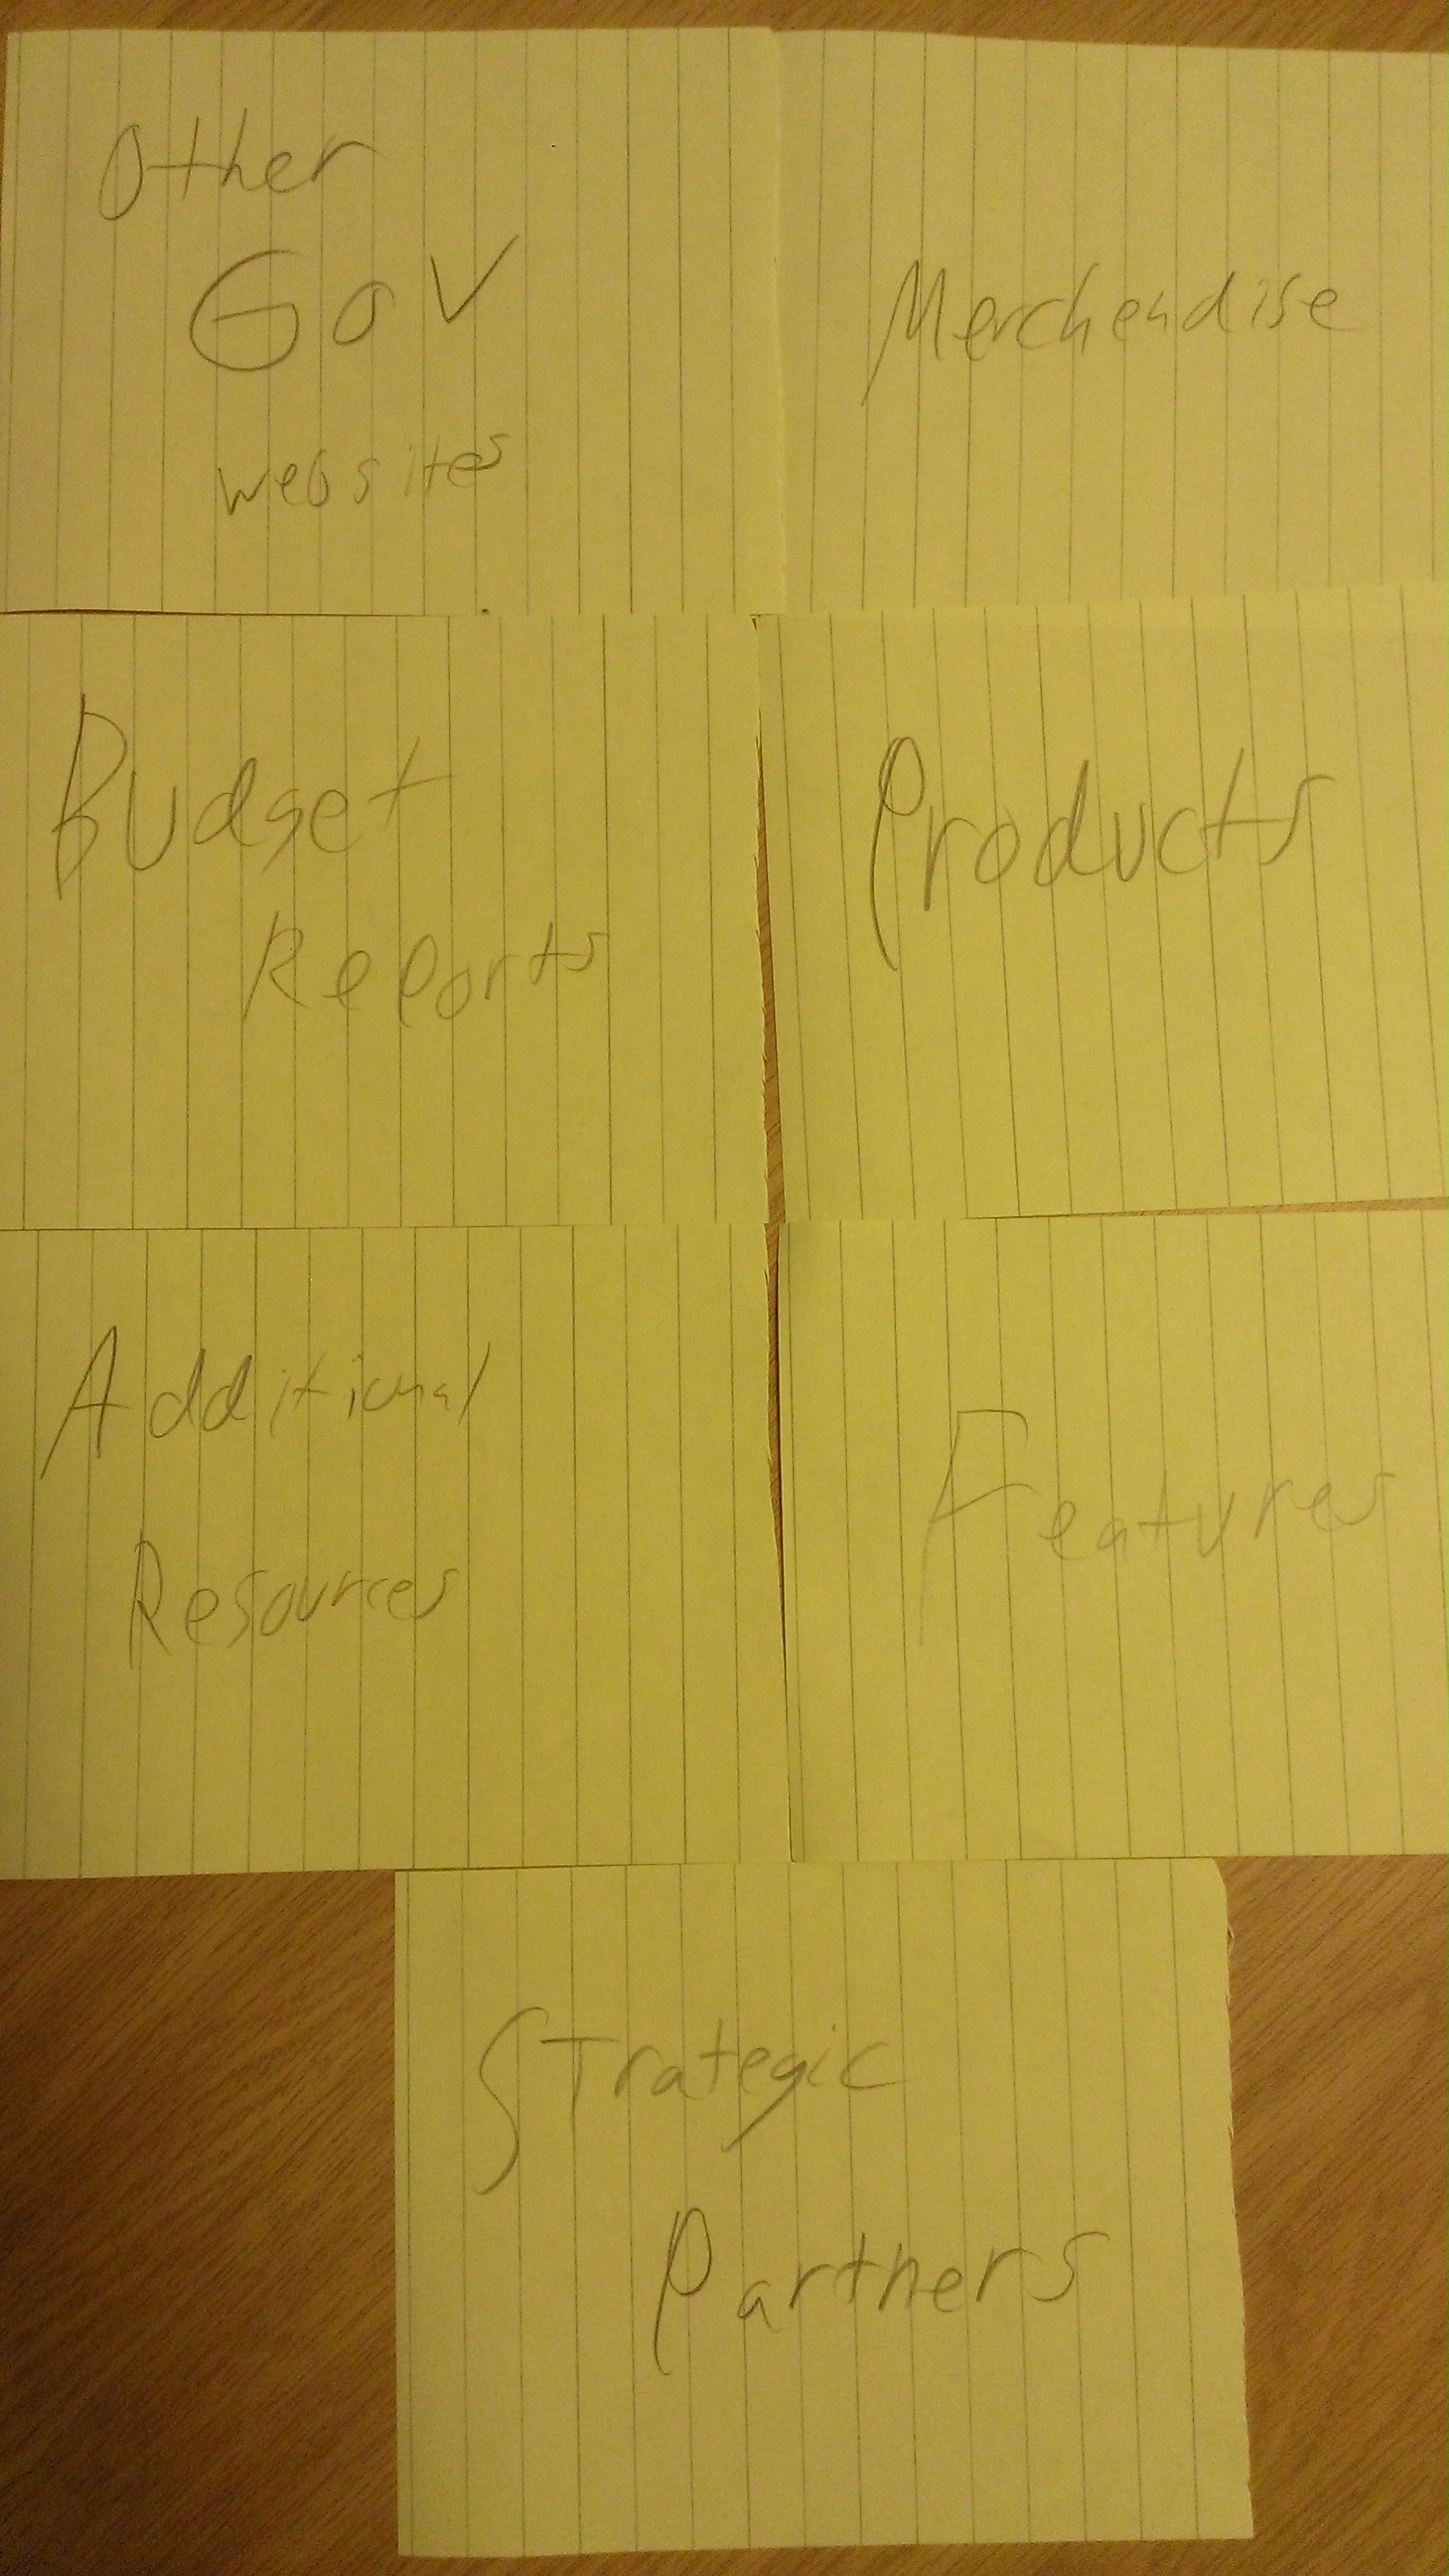 Other
Gov
websites
Merchendise
Budget
Reports
Products
Additional
Resources
Features
Strategic
Partners